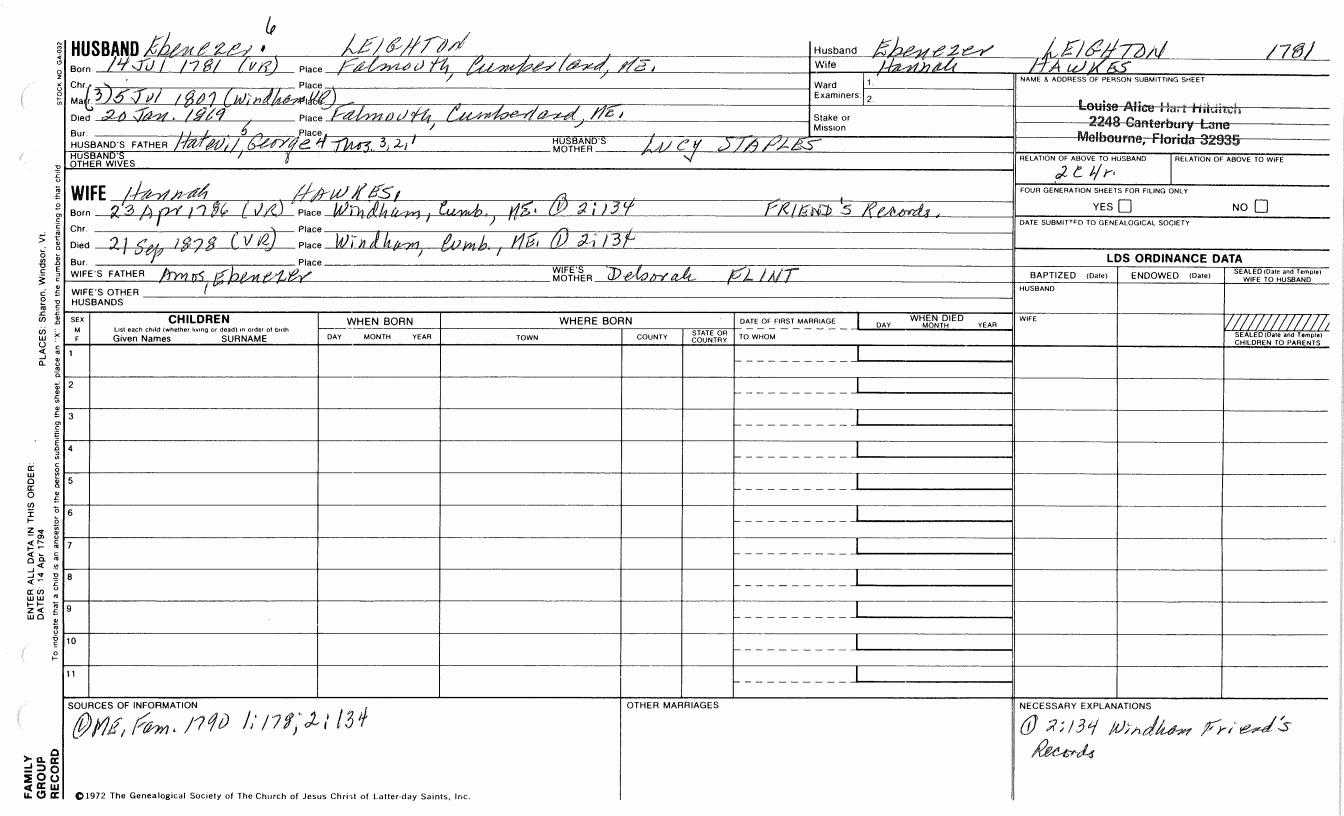 6
HUSBAND Ebenezer. LEIGHTON
Born 14 Jul 1781 (VR) Place Falmouth, Cumberland, ME.
Chr. Place
Marr. (3) 5 Jul 1807 (Windham VR)
Died 20 Jan. 1869 Place Falmouth, Cumberland, ME.
Bur. Place
HUSBAND'S FATHER Hatevil, 5 George 4 Thos. 3, 2, 1 HUSBAND'S MOTHER LUCY STAPLES
HUSBAND'S OTHER WIVES
WIFE Hannah HAWKES.
Born 23 Apr 1786 (VR) Place Windham, Cumb., ME. ① 2:134 FRIEND'S Records.
Chr. Place
Died 21 Sep 1878 (VR) Place Windham, Cumb., ME. ① 2:134
Bur. Place
WIFE'S FATHER Amos, Ebenezer WIFE'S MOTHER Deborah FLINT
WIFE'S OTHER HUSBANDS
Husband Ebenezer LEIGHTON 1781
Wife Hannah HAWKES
Ward Examiners: 1. 2.
Stake or Mission
NAME & ADDRESS OF PERSON SUBMITTING SHEET
Louise Alice Hart Hilditch
2248 Canterbury Lane
Melbourne, Florida 32935
RELATION OF ABOVE TO HUSBAND RELATION OF ABOVE TO WIFE
2C4r.
FOUR GENERATION SHEETS FOR FILING ONLY
YES NO
DATE SUBMITTED TO GENEALOGICAL SOCIETY
LDS ORDINANCE DATA
BAPTIZED (Date) ENDOWED (Date) SEALED (Date and Temple) WIFE TO HUSBAND
HUSBAND
WIFE
SEALED (Date and Temple) CHILDREN TO PARENTS
SEX M F
CHILDREN
List each child (whether living or dead) in order of birth
Given Names SURNAME
WHEN BORN
DAY MONTH YEAR
WHERE BORN
TOWN COUNTY STATE OR COUNTRY
DATE OF FIRST MARRIAGE
TO WHOM
WHEN DIED
DAY MONTH YEAR
1
2
3
4
5
6
7
8
9
10
11
SOURCES OF INFORMATION
① ME, Fam. 1790 1:178; 2:134
OTHER MARRIAGES
NECESSARY EXPLANATIONS
① 2:134 Windham Friend's
Records
©1972 The Genealogical Society of The Church of Jesus Christ of Latter-day Saints, Inc.
STOCK NO. GA-032
PLACES: Sharon, Windsor, Vt.
ENTER ALL DATA IN THIS ORDER:
DATES: 14 Apr 1794
To indicate that a child is an ancestor of the person submitting the sheet, place an "X" behind the number pertaining to that child
FAMILY
GROUP
RECORD